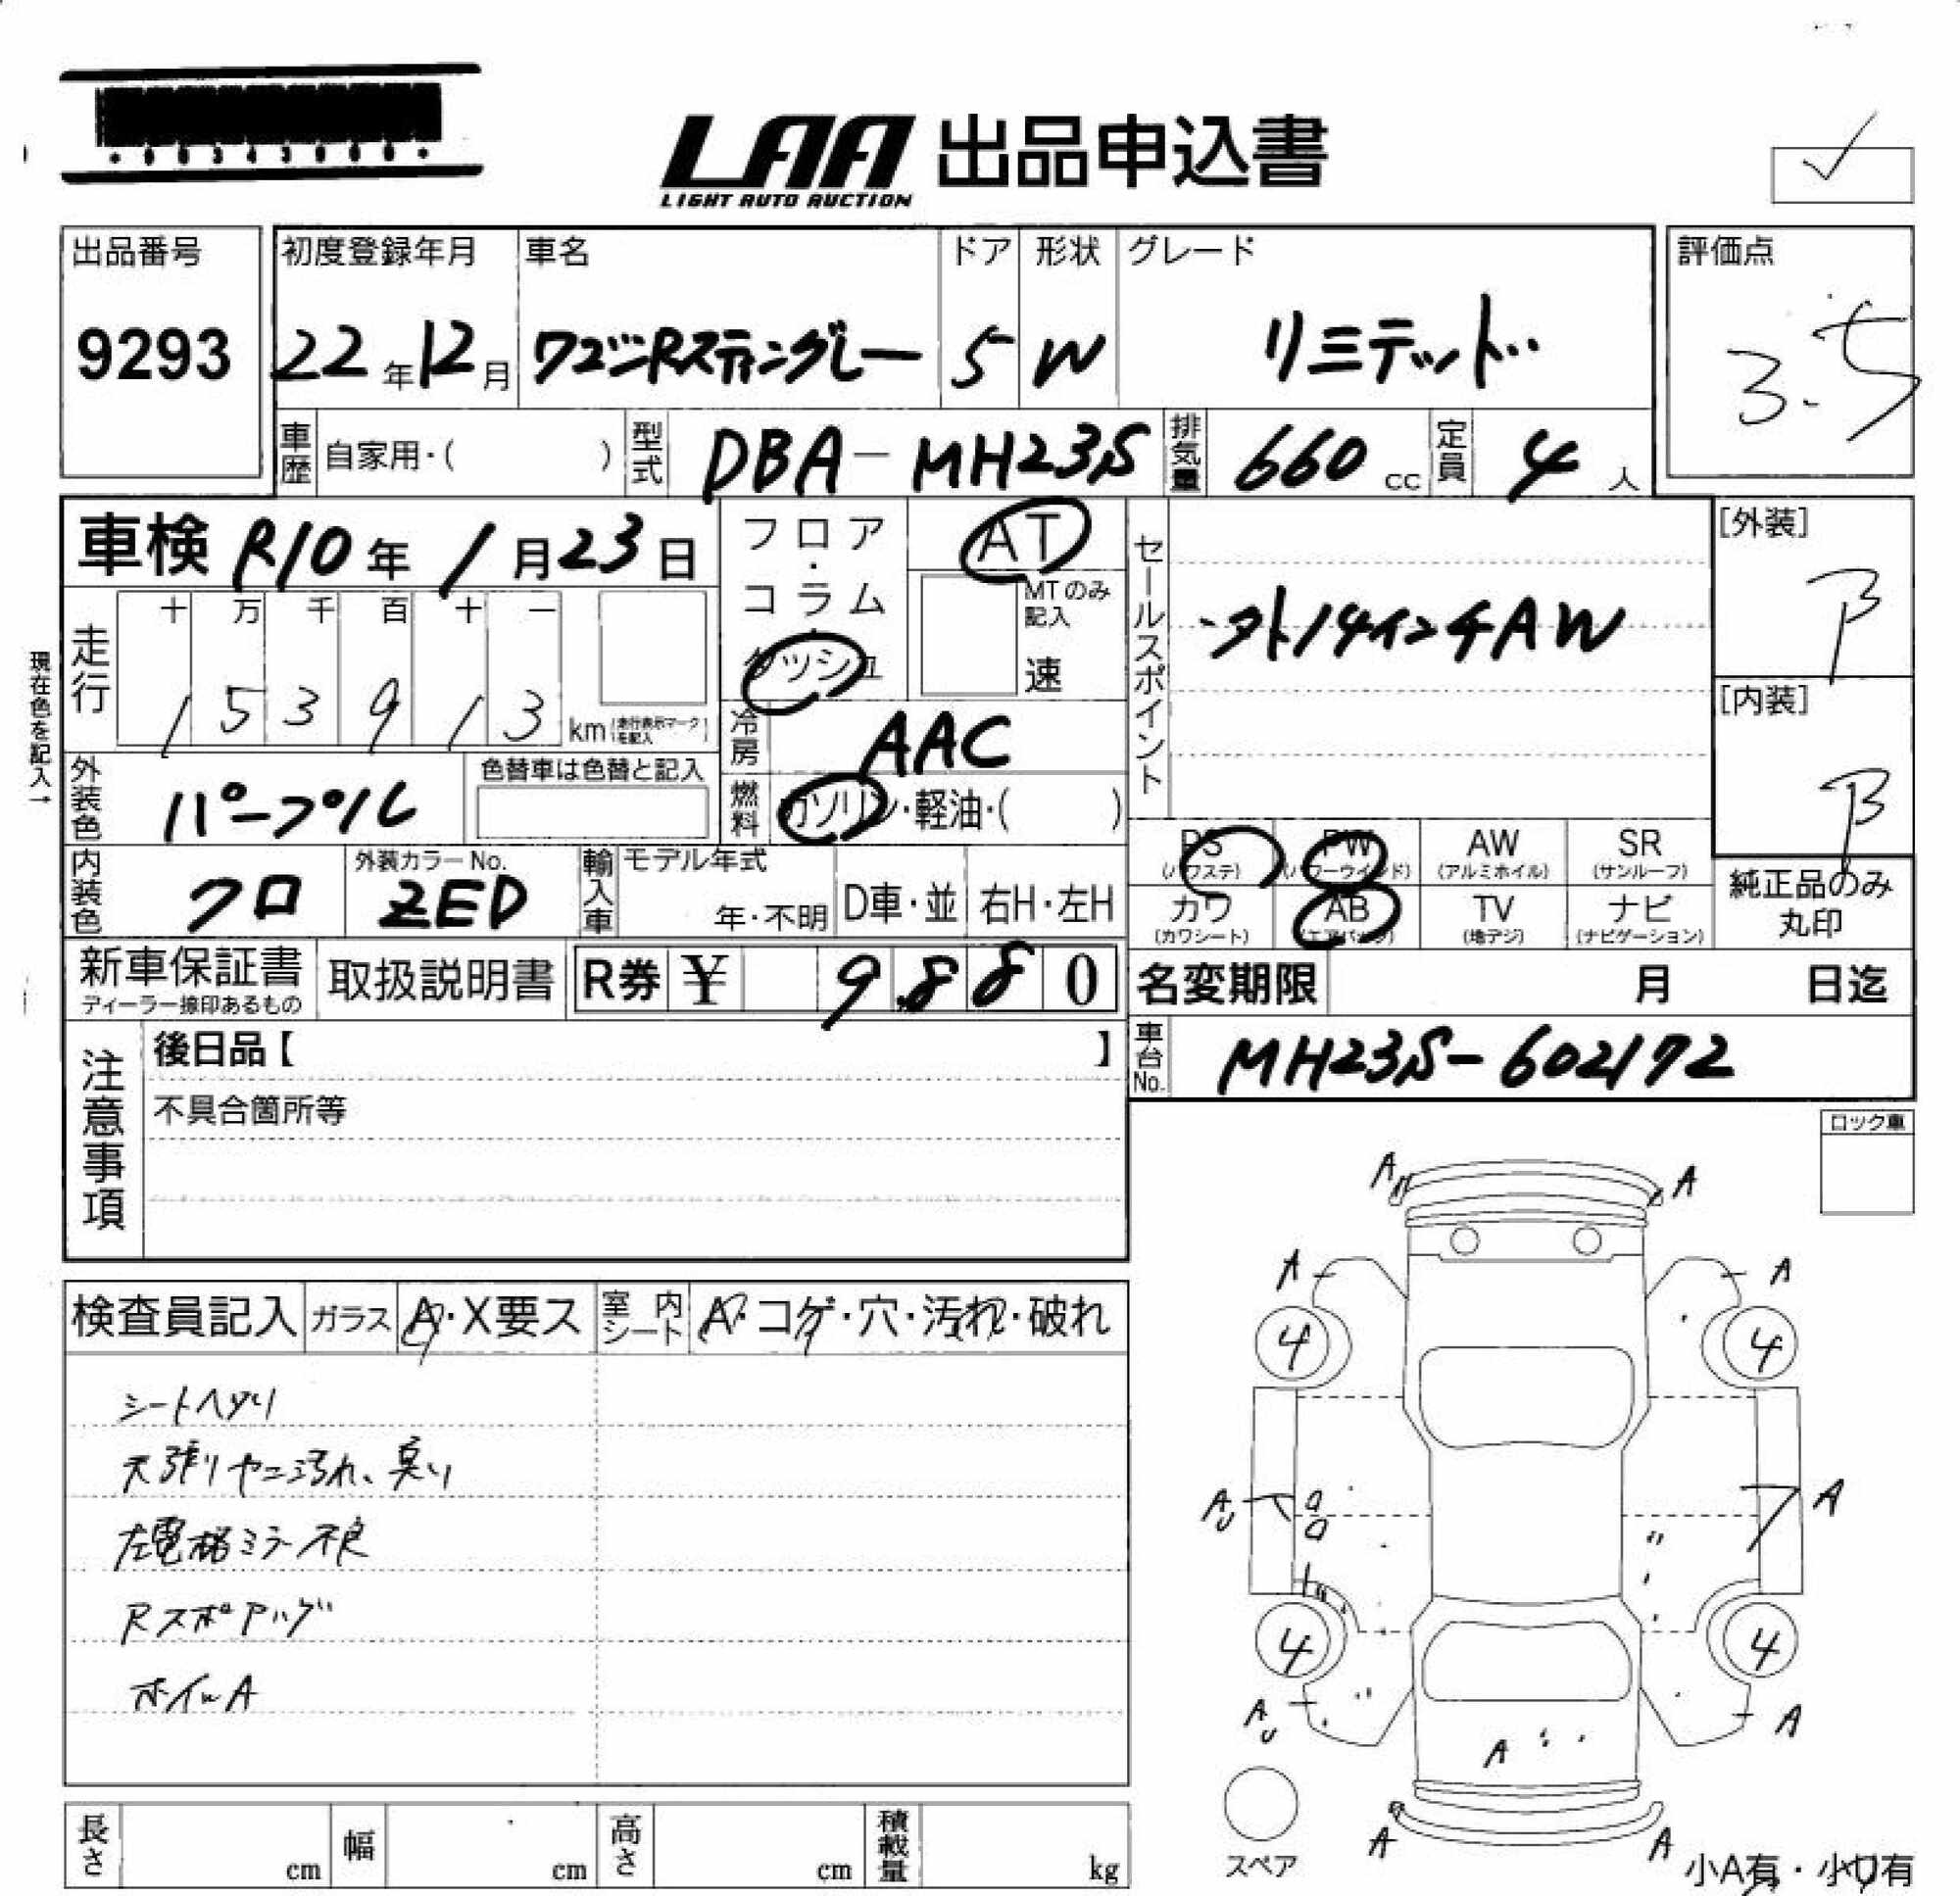 LAA 出品申込書
LIGHT AUTO AUCTION
出品番号
9293
初度登録年月
22年12月
車名
ワゴンRスティングレー
ドア
5
形状
W
グレード
リミテッド
評価点
3.5
車歴 自家用・( )
型式 DBA-MH23S
排気量 660cc
定員 4人
車検 R10年1月23日
フロア・コラム・ダッシュ
AT
MTのみ記入
速
走行
十 万 千 百 十 一
1 5 3 9 1 3 km (走行表示マークを記入)
現在色を記入→
冷房 AAC
燃料 ガソリン・軽油・( )
外装色 パープル
色替車は色替と記入
内装色 クロ
外装カラーNo.
ZED
輸入車 モデル年式
年・不明 D車・並 右H・左H
セールスポイント
14インチAW
[外装]
B
[内装]
B
PS (パワステ)
PW (パワーウインド)
AW (アルミホイル)
SR (サンルーフ)
カワ (カワシート)
AB (エアバッグ)
TV (地デジ)
ナビ (ナビゲーション)
純正品のみ丸印
新車保証書
ディーラー捺印あるもの
取扱説明書
R券 ¥ 9,880
名変期限 月 日迄
車台No. MH23S-602172
注意事項
後日品【 】
不具合箇所等
ロック車
検査員記入 ガラス A・X要ス 室内シート A・コゲ・穴・汚れ・破れ
シートヘタリ
天張りヤニ汚れ、臭い
左電格ミラー不良
Rスポアハゲ
ホイルA
A A
A A
4 4
AU A
4 4
AU A
A
A A
スペア
小A有・小U有
長さ cm 幅 cm 高さ cm 積載量 kg